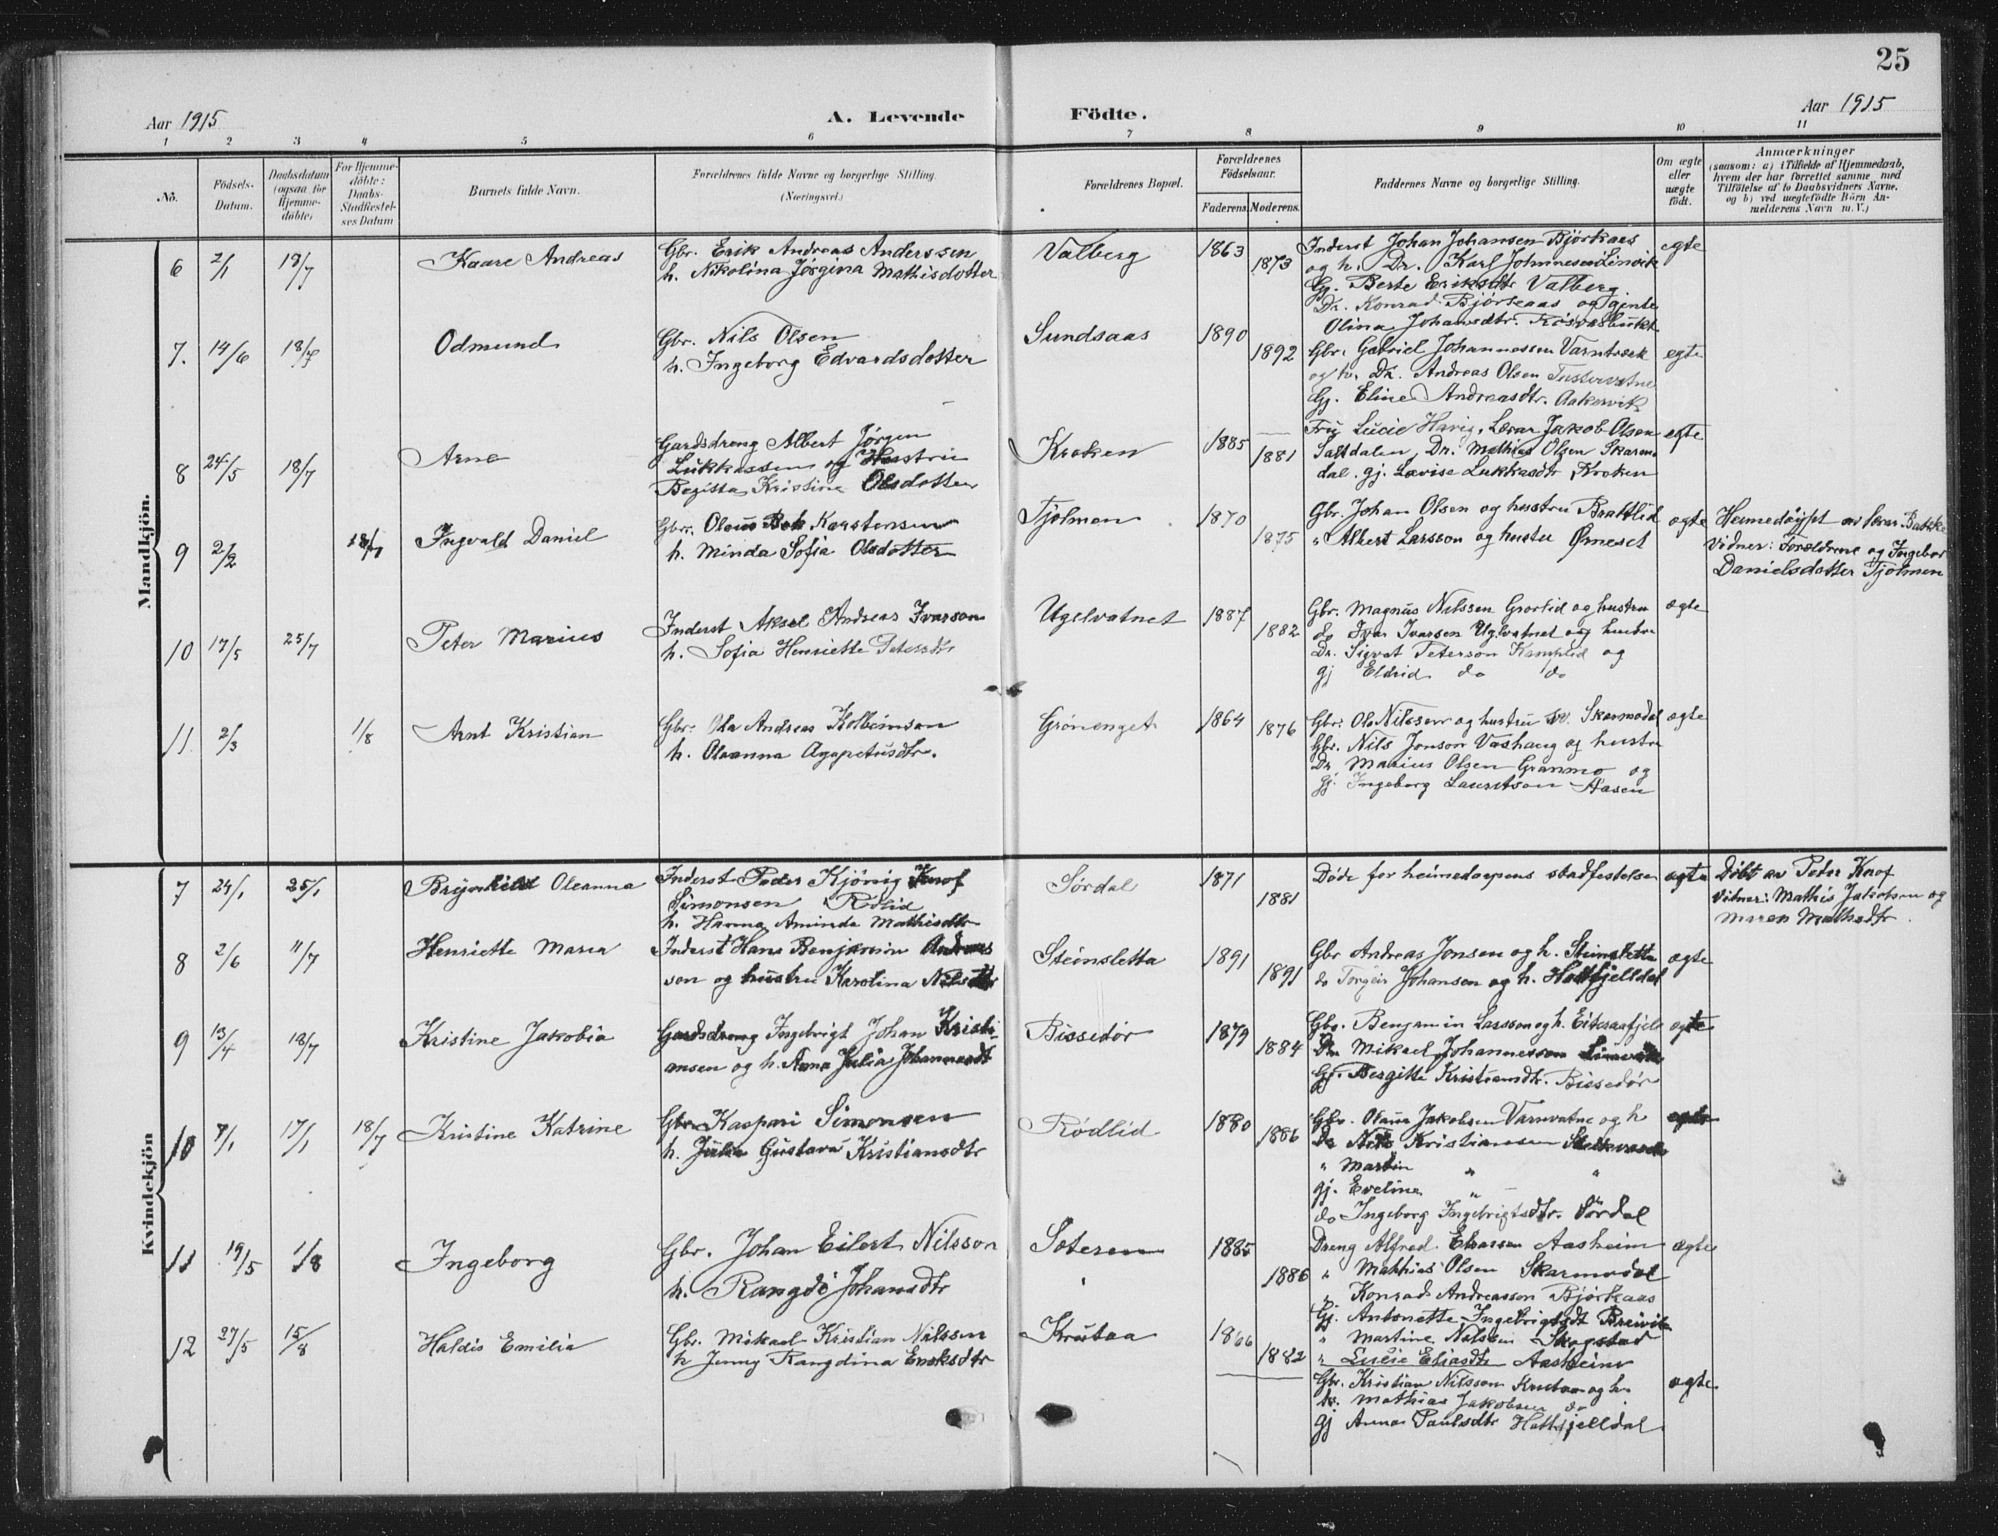 25
Aar 1915
A. Levende Födte.
Aar 1915
1 2 3 4 5 6 7 8 9 10 11
No.
Födsels-Datum.
Daabsdatum (ogsaa for Hjemme-döbte)
For Hjemme-döbte: Daabs-Stadfæstel-ses Datum
Barnets fulde Navn.
Forældrenes fulde Navne og borgerlige Stilling. (Næringsvei.)
Forældrenes Bopæl.
Forældrenes Födselsaar.
Faderens. Moderens.
Faddernes Navne og borgerlige Stilling.
Om ægte eller uægte födt.
Anmærkninger
(saasom: a) i Tilfælde af Hjemmedaab, hvem der har forrettet samme, med Tilföielse af to Daabsvidners Navne. og b) ved uægtefödte Börn An-melderens Navn m. V.)
Mandkjön.
6 2/1 18/7 Kaare Andreas
Gbr. Erik Andreas Anderssen
h. Nikolina Jørgina Mathisdotter
Valberg 1863 1873
Inderst Johan Johansen Bjørkaas
og h. Dr. Karl Johnnesen Linvik
Gj. Berte Eriksdtr Valberg
Dr. Konrad Bjørkaas og gjente
Olina Johansdtr. Røsvasbukt
egte
7. 14/6 18/7 Odmund
Gbr. Nils Olsen
h. Ingeborg Edvardsdotter
Sundsaas 1890 1892
Gbr. Gabriel Johannessen Varntræsk
og h. Dr. Andreas Olsen Tustervatne
Gj. Eline Andreasdtr. Aakervik
egte
8 24/5 18/7 Arne
Gardsdreng Albert Jørgen
Lukkassen og Hustru
Kristine Olsdotter
Kroken 1885 1881
Fru Lucie Havig, Lærar Jakob Olsen
Saltdalen, Dr. Mathias Olsen Skarmo
dal. gj. Lovise Lukkasdtr Kroken
egte
9 2/2 18/7 Ingvald Daniel
Gbr. Olaus Bek Karstensen
h. Minda Sofia Olsdotter
Tjolmen 1870 1875
Gbr. Johan Olsen og hustru Brattlid
" Albert Larsson og hustru Ørneset
egte
Heimedøypt av lærar Bakke
Vidner: Foreldrene og Ingebor
Danielsdotter Tjolmen
10 17/5 25/7 Peter Marius
Inderst Aksel Andreas Ivarson
h. Sofia Henriette Petersdtr
Ugelvatnet 1887 1882
Gbr. Magnus Nilssen Grortid og hustru
do Ivar Ivarsen Uglvatnet og hustru
Dr. Sigvat Peterson Kamplid og
gj Eldrid do do
egte
11 2/3 1/8 Arnt Kristian
Gbr. Ola Andreas Kolbeinson
h. Oleanna Agapetusdtr.
Grønenget 1864 1876
Gbr. Ole Nilssen og hustru Skarmodal
Gbr. Nils Jonson Vashaug og hustru
Dr Marius Olsen Granmo og
gj. Ingeborg Lauritson Aasen
egte
Kvindekjön
7 24/1 25/1 Brynhild Oleanna
Inderst Peder Kjønig Knof
Simonsen Rødlid
h. Hanna Aminda Mathisdtr
Sørdal 1871 1881
Døde før heimedaapens stadfestelse
egte
Døbt av Peter Knof
vidner: Mathis Jakobsen og
Maren Mathsdtr.
8 2/6 11/7 Henriette Maria
Inderst Hans Benjamin Andreas
son og hustru Karolina Nilsdtr
Steinsletta 1891 1891
Gbr Andreas Jonsen og h. Steinsletta
do Torgeir Johansen og h. Hattfjelldal
egte
9 13/4 18/7 Kristine Jakobia
Gardsdreng Ingebrigt Johan Kristi-
ansen og h. Anna Julia Johannesdt
Bissedør 1879 1884
Gbr. Benjamin Larsson og h.
Dr Mikael Johannessen
Gj. Bergitte Kristiandtr. Bissedør
egte
10 7/1 17/1 18/7 Kristine Katrine
Gbr Kaspari Simonsen
h. Julia Gustava Kristiansdtr
Rødlid 1880 1886
Gbr. Olaus Jakobsen Varnvatne og h
Dr Nils Kristiansen
" Martin " "
gj. Eveline " "
do Ingeborg Ingebrigtsdtr. Sørdal
egte
11 19/5 1/8 Ingeborg
Gbr. Johan Eilert Nilsson
h. Rangdi Johansdtr
Soteren 1885 1886
Dreng Alfred Eliassen Aasheim
" Mathias Olsen Skarmodal
" Konrad Andreasson Bjørkaas
Gj. Antonette Ingebrigtsdt Breivik
" Martine Nilssen Skogstad
" Lucie Eliasdtr Aasheim
egte
12 27/5 15/8 Haldis Emilia
Gbr. Mikael Kristian Nilssen
h Jenny Rangdina Enoksdtr
Krutaa 1866 1882
Gbr. Kristian Nilsson Krutaa og h.
Dr. Mathias Jakobsen do
gj Anna Paulsdtr Hattfjelldal
egte